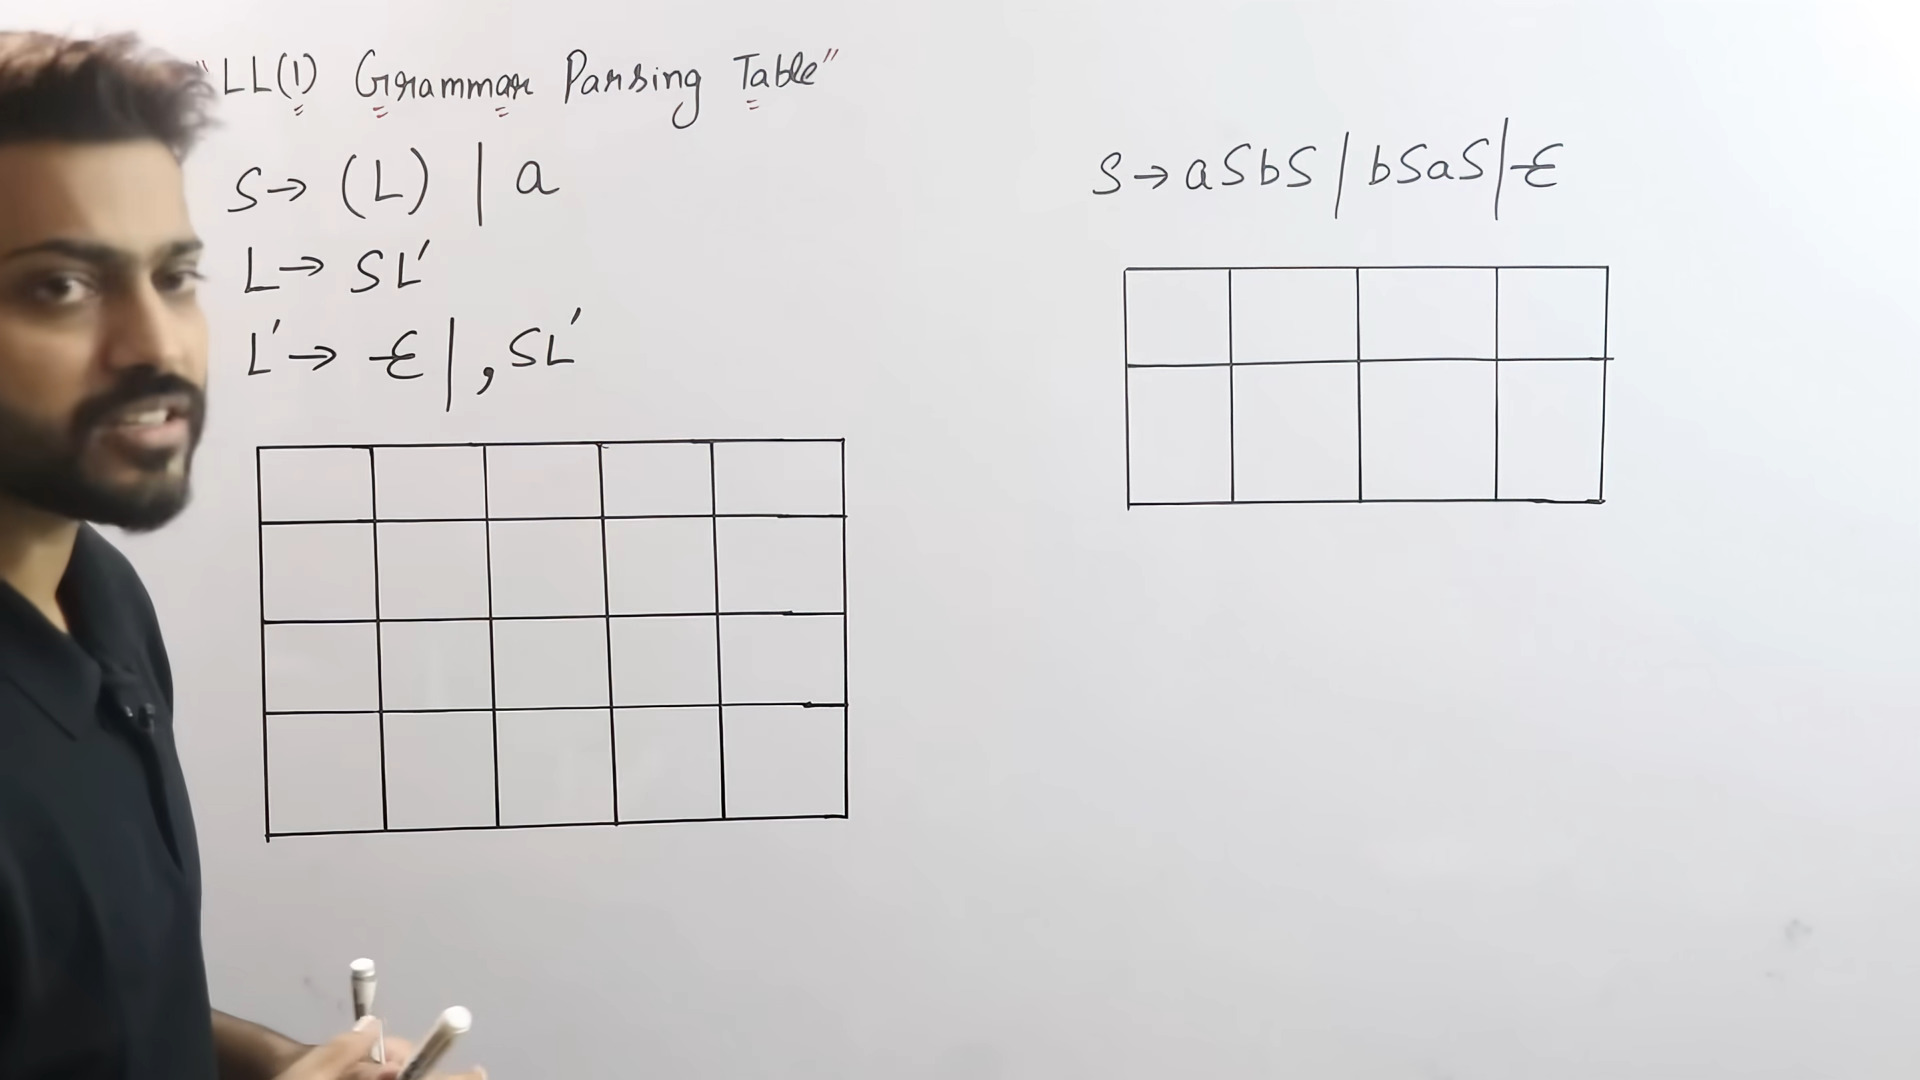 "LL(1) Grammar Parsing Table"
S→ (L) | a
L→ SL′
L′→ Ɛ | , SL′
S→ aSbS | bSaS | Ɛ